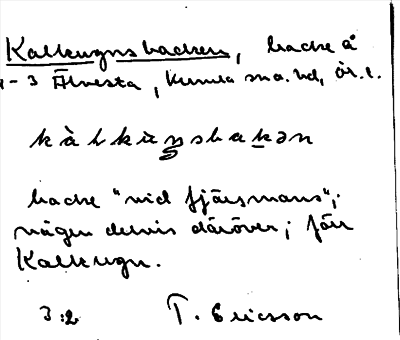 Kalkugnsbacken, backe å
1-3 Älvesta, Kumla sn o. hd, Ör. l.
kàlkùŋnsbakən
backe "vid fjärsmans";
vägen delvis däröver; förr
Kalkugn.
3:2 T. Ericsson